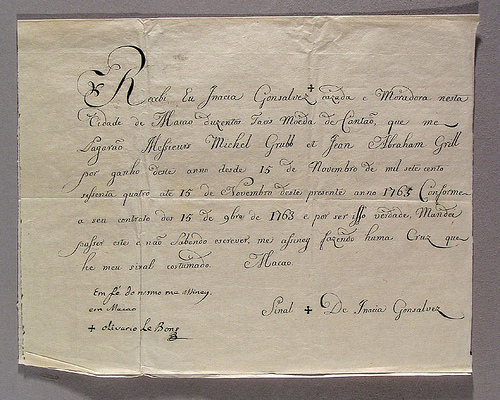 Recebi Eu Inacia Gonsalvez cazada e Moradora nesta
Cidade de Macao duzentos Taes Moéda de Cantaõ, que me
Pagaraõ Messieurs Michel Grubb et Jean Abraham Grill
por ganho deste anno desde 15 de Novembro de mil sete cento
sesienta quatro ate 15 de Novembro deste presente anno 1765 Conforme
a seu contrato dos 15 de 9bre de 1763 e por ser isso verdade, Mandei
passar este e naõ Sabendo escrever, me assiney fazendo huma Cruz que
he meu sinal costumado. Macao.
Em fé do mesmo me assiney.
em Macao
+ Olivario Le Bons
Sinal + De Inacia Gonsalvez